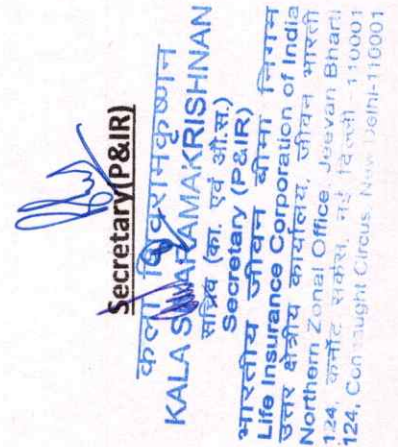 Secretary(P&IR)
कला
KALA
सचिव (का. एवं औ.स.)
Secretary (P&IR)
भारतीय जीवन बीमा निगम
Life Insurance Corporation of India
उत्तर क्षेत्रीय कार्यालय, जीवन भारती
Northern Zonal Office, Jeevan Bharti
124, कनॉट सर्कस, नई दिल्ली -110001
124, Connaught Circus, New Delhi-110001